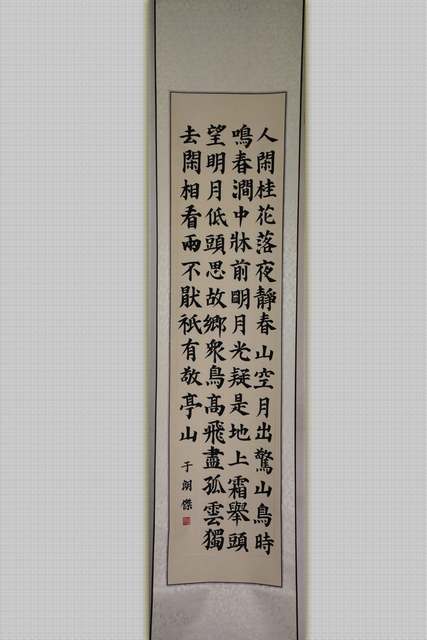 人閑桂花落夜靜春山空月出驚山鳥時
鳴春澗中牀前明月光疑是地上霜舉頭
望明月低頭思故鄉衆鳥高飛盡孤雲獨
去閑相看兩不猒祇有敬亭山
于 傑